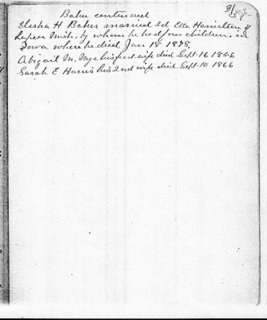 Baker continued
Elisha H Baker married 3d, Etta Hamilton of
Lapeer Mich. by whom he had four children, in
Iowa where he died Jan 18 1898,
Abigail M. Nye his first wife died Sept 16 1846
Sarah E Harris his 2nd wife died Sept 10 1866